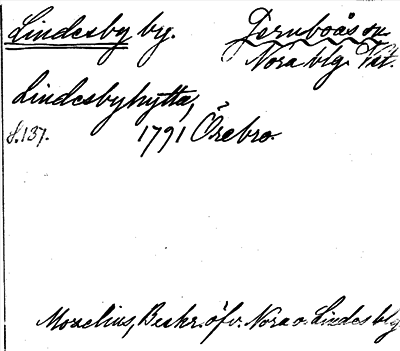 Lindesby by. Jernboås sn
Nora blg. Vstm.
Lindesbyhytta,
s. 137. 1791 Örebro.
Moxelius, Beskr. öfv. Nora o. Lindes blg.